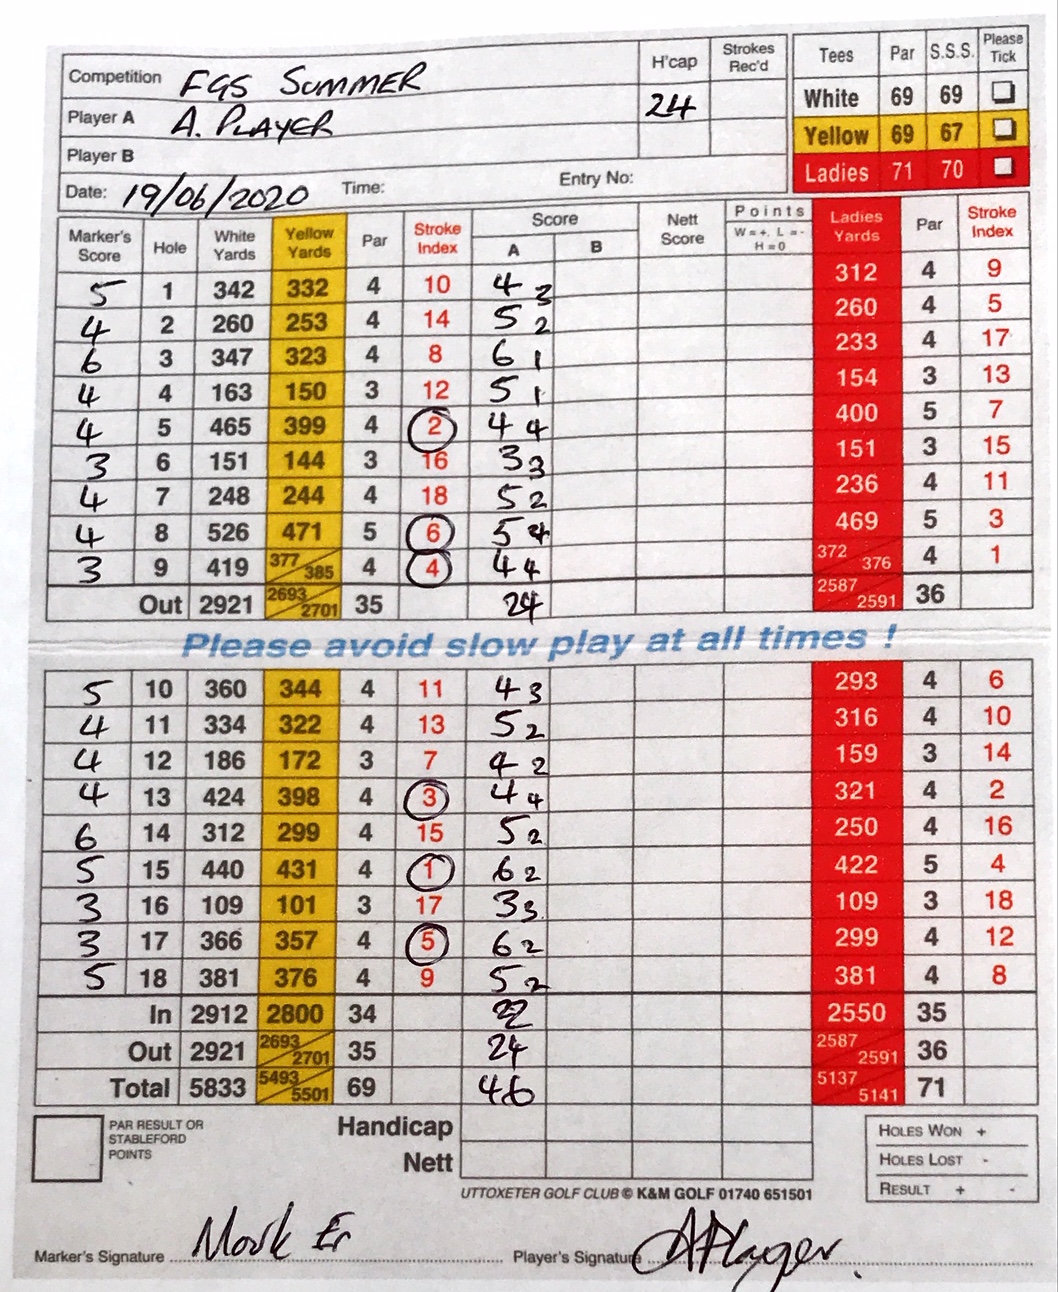 Competition FGS SUMMER H'cap Strokes Rec'd Tees Par S.S.S. Please Tick
Player A A. PLAYER 24 White 69 69
Player B Yellow 69 67
Date: 19/06/2020 Time: Entry No: Ladies 71 70
Marker's Score Hole White Yards Yellow Yards Par Stroke Index Score A B Nett Score Points W=+, L=- H=0 Ladies Yards Par Stroke Index
5 1 342 332 4 10 4 3 312 4 9
4 2 260 253 4 14 5 2 260 4 5
6 3 347 323 4 8 6 1 233 4 17
4 4 163 150 3 12 5 1 154 3 13
4 5 465 399 4 2 4 4 400 5 7
3 6 151 144 3 16 3 3 151 3 15
4 7 248 244 4 18 5 2 236 4 11
4 8 526 471 5 6 5 4 469 5 3
3 9 419 377 385 4 4 4 4 372 376 4 1
Out 2921 2693 2701 35 24 2587 2591 36
Please avoid slow play at all times !
5 10 360 344 4 11 4 3 293 4 6
4 11 334 322 4 13 5 2 316 4 10
4 12 186 172 3 7 4 2 159 3 14
4 13 424 398 4 3 4 4 321 4 2
6 14 312 299 4 15 5 2 250 4 16
5 15 440 431 4 1 6 2 422 5 4
3 16 109 101 3 17 3 3 109 3 18
3 17 366 357 4 5 6 2 299 4 12
5 18 381 376 4 9 5 2 381 4 8
In 2912 2800 34 22 2550 35
Out 2921 2693 2701 35 24 2587 2591 36
Total 5833 5493 5501 69 46 5137 5141 71
PAR RESULT OR STABLEFORD POINTS Handicap HOLES WON +
Nett HOLES LOST -
RESULT + -
UTTOXETER GOLF CLUB © K&M GOLF 01740 651501
Marker's Signature Mark Er Player's Signature A Player